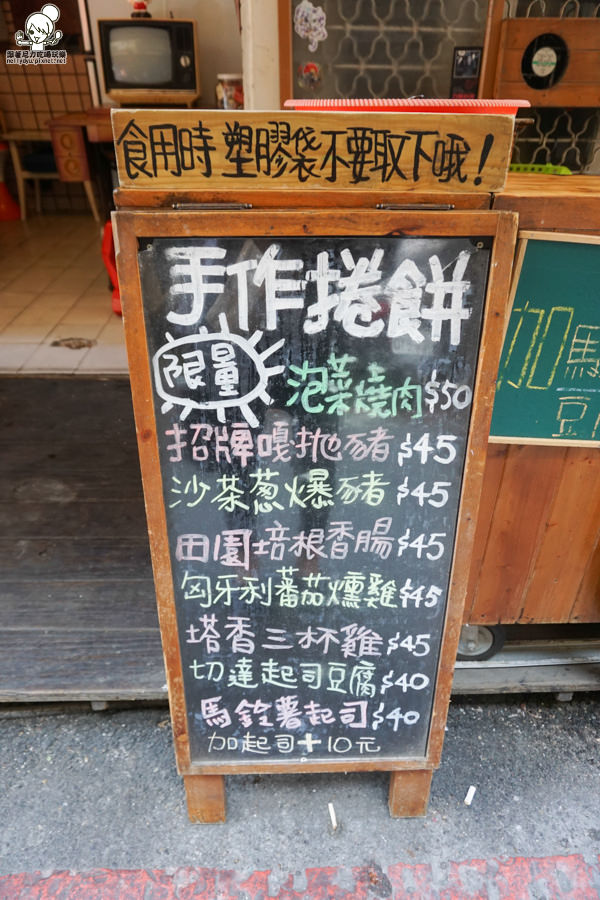 跟著尼力吃喝玩樂
nellydyu.tw
食用時塑膠袋不要取下哦！
手作捲餅
限量
泡菜燒肉$50
招牌嘎抛豬$45
沙茶蔥爆豬$45
田園培根香腸$45
匈牙利蕃茄燻雞$45
塔香三杯雞$45
切達起司豆腐$40
馬鈴薯起司$40
加起司+10元
加馬
豆